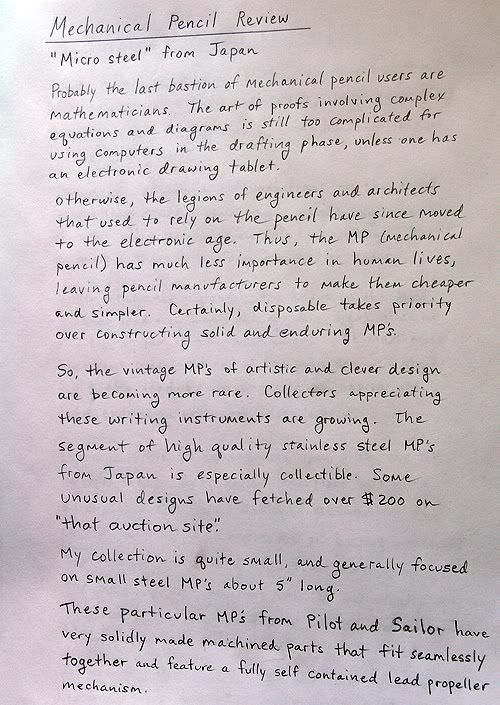 Mechanical Pencil Review
"Micro steel" from Japan
Probably the last bastion of mechanical pencil users are
mathematicians. The art of proofs involving complex
equations and diagrams is still too complicated for
using computers in the drafting phase, unless one has
an electronic drawing tablet.
Otherwise, the legions of engineers and architects
that used to rely on the pencil have since moved
to the electronic age. Thus, the MP (mechanical
pencil) has much less importance in human lives,
leaving pencil manufacturers to make them cheaper
and simpler. Certainly, disposable takes priority
over constructing solid and enduring MP's.
So, the vintage MP's of artistic and clever design
are becoming more rare. Collectors appreciating
these writing instruments are growing. The
segment of high quality stainless steel MP's
from Japan is especially collectible. Some
unusual designs have fetched over $200 on
"that auction site".
My collection is quite small, and generally focused
on small steel MP's about 5" long.
These particular MP's from Pilot and Sailor have
very solidly made machined parts that fit seamlessly
together and feature a fully self contained lead propeller
mechanism.